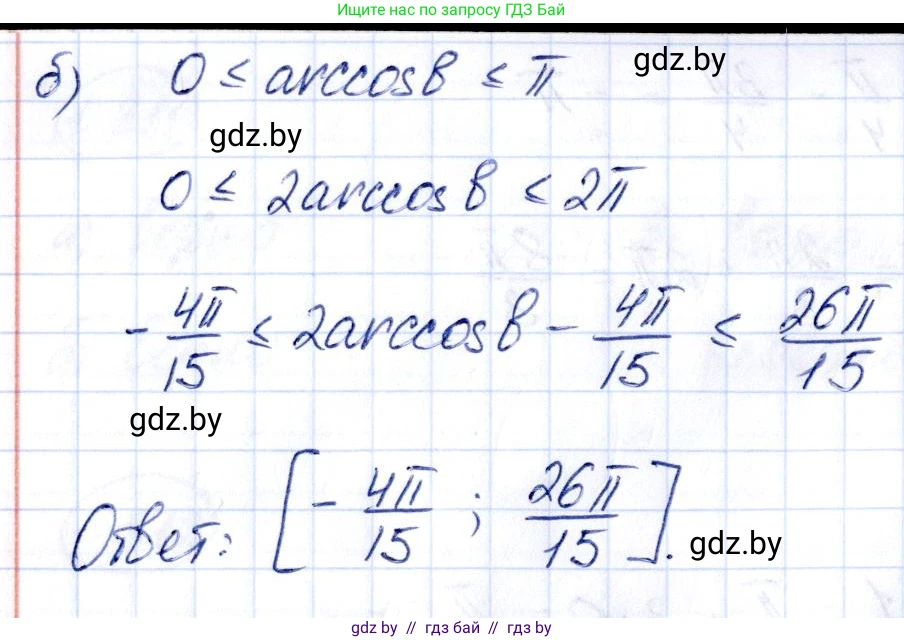 Ищите нас по запросу ГДЗ Бай
б) 0 ≤ arccos b ≤ π
gdz.by
gdz.by
0 ≤ 2arccos b ≤ 2π
-4π/15 ≤ 2arccos b - 4π/15 ≤ 26π/15
gdz.by
Ответ: [-4π/15 ; 26π/15].
gdz.by
gdz.by // гдз бай // гдз by